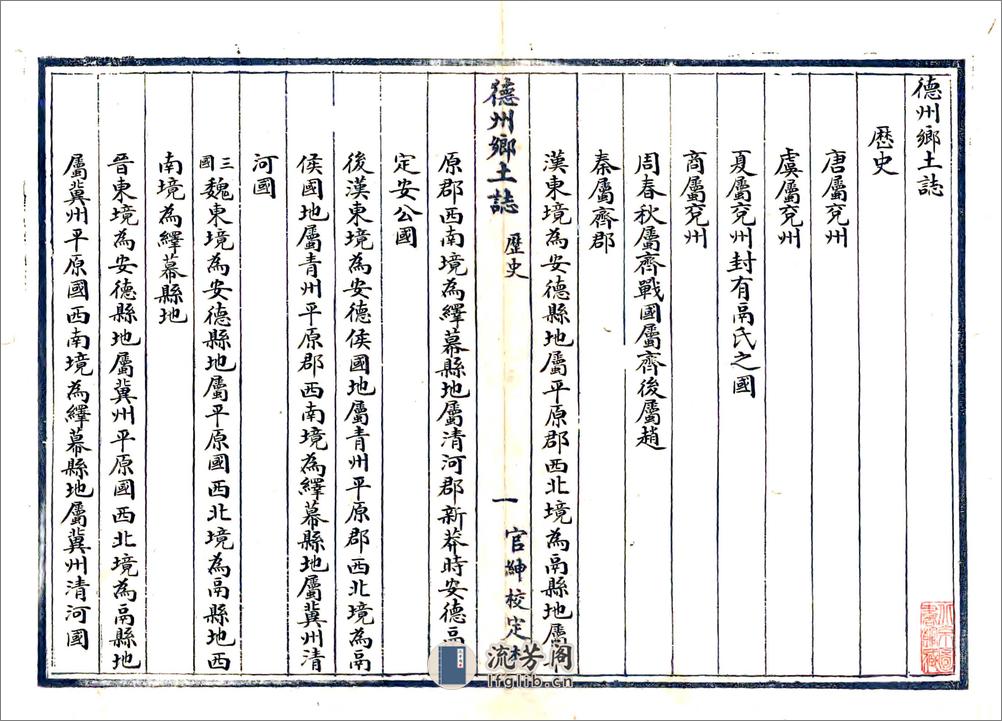 德州鄉土誌
歷史
唐屬兗州
虞屬兗州
夏屬兗州封有鬲氏之國
商屬兗州
周春秋屬齊戰國屬齊後屬趙
秦屬齊郡
漢東境為安德縣地屬平原郡西北境為鬲縣地屬
德州鄉土誌 歷史 一 官紳校定
原郡西南境為繹幕縣地屬清河郡新莽時安德鬲
定安公國
後漢東境為安德侯國地屬青州平原郡西北境為鬲
侯國地屬青州平原郡西南境為繹幕縣地屬冀州清
河國
三國魏東境為安德縣地屬平原國西北境為鬲縣地西
南境為繹幕縣地
晉東境為安德縣地屬冀州平原國西北境為鬲縣地
屬冀州平原國西南境為繹幕縣地屬冀州清河國
流芳阁
lfglib.cn